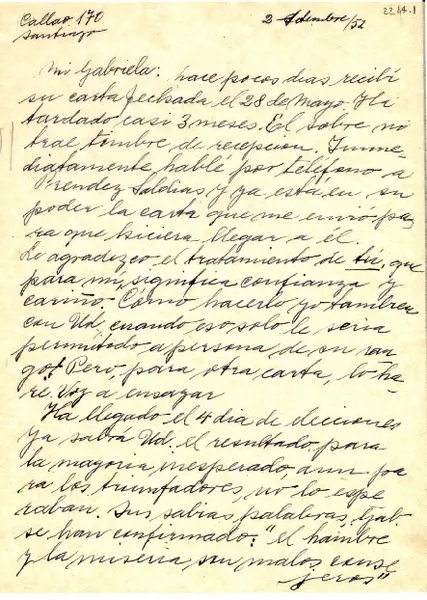 Callao 170
Santiago
2 Setiembre/52
2214.1
Mi Gabriela: hace pocos dias recibí
su carta fechada el 28 de Mayo. Ha
tardado casi 3 meses. El sobre no
trae timbre de recepcion. Inme-
diatamente hablé por teléfono a
Prendez Saldias y ya está en su
poder la carta que me envió pa-
ra que hiciera llegar a él.
Lo agradezco el tratamiento de tú, que
para mí, significa confianza y
cariño. Cómo hacerlo yo tambien
con Ud, cuando eso solo le seria
permitido a persona de su ran-
go! Pero, para otra carta, lo ha-
ré. Voy a ensayar
Ha llegado el 4 dia de elecciones
Ya sabrá Ud. el resultado para
la mayoria inesperado, aun pa
ra los triunfadores, no lo espe
raban. Sus sabias palabras, Gab.
se han confirmado: "el hambre
y la miseria son malos conse
jeros"